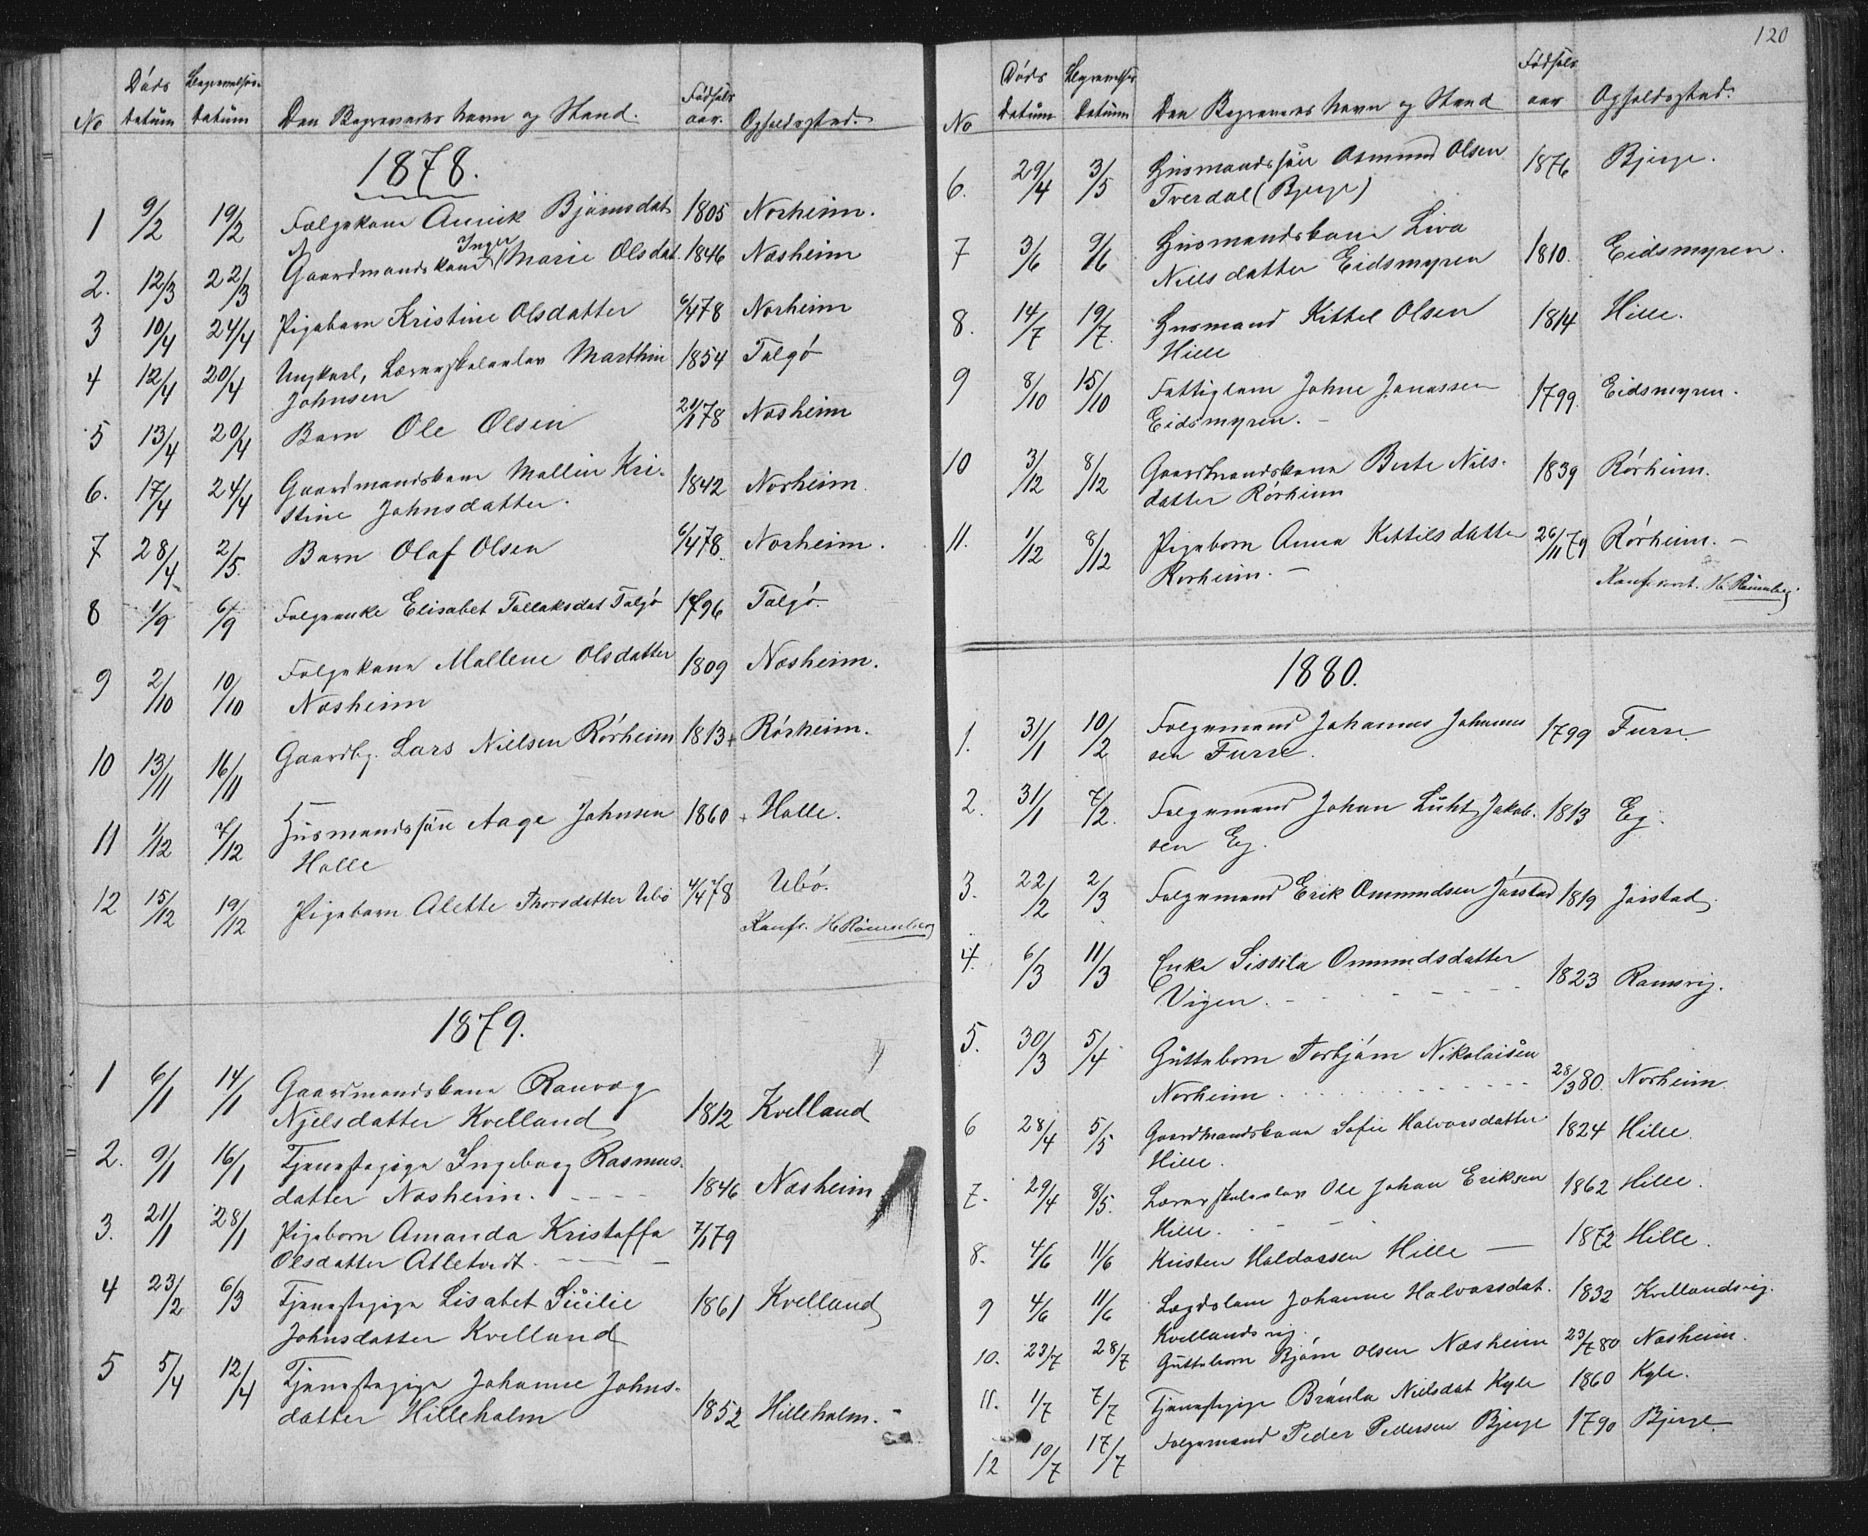 No Døds datum Begravelses- datum Den Begravedes Navn og Stand. Fødsels aar. Opholdssted.
1878.
1 9/2 19/2 Folgekone Annik Bjørnsdat 1805 Norheim.
2. 12/3 22/3 Gaardmandskone Inger Marie Olsdat. 1846 Næsheim
3 10/4 24/4 Pigebarn Kristine Olsdatter 6/4 78 Norheim
4 12/4 20/4 Ungkarl, Lærerskoleelev Marthin 1854 Talgø
Johnsen
5 13/4 20/4 Barn Ole Olsen 21/1 78 Næsheim
6. 17/4 24/4 Gaardmandskone Mallin Kri- 1842 Norheim.
stine Johnsdatter.
7 28/4 2/5. Barn Olaf Olsen 6/4 78. Norheim.
8 1/9 6/9 Folgeenke Elisabet Tollaksdat Talgø 1796 Talgø.
9 2/10 10/10 Folgekone Mallene Olsdatter 1809 Næsheim.
Næsheim
10 13/11 16/11 Gaardbg. Lars Nielsen Rørheim 1813+ Rørheim.
11 1/12 7/12 Husmandssøn Aage Johnsen 1860 + Halle.
Halle
12 15/12 19/12 Pigebarn Alette Thorsdatter Ubø 4/4 78 Ubø.
Konfr. H. Rønneberg
1879.
1 6/1 14/1 Gaardmandskone Ranvog
Njelsdatter Kvelland 1812 Kvelland
2. 9/1 16/1 Tjenestepige Ingeborg Rasmus-
datter Næsheim. 1846 Næsheim
3. 21/1 28/1 Pigebarn Amanda Kristoffa 7/1 79
Olsdatter Atletvedt.
4 23/2 6/3 Tjenestepige Lisabet Sicilie 1861 Kvelland
Johnsdatter Kvelland
5 5/4 12/4 Tjenestepige Johanne Johns-
datter Hilleholm 1852 Hilleholm.
120
No Døds datum Begravelses Datum Den Begravedes Navn og Stand Fødsels aar Opholdssted.
6. 29/4 3/5 Husmandssøn Osmund Olsen 1876 Bjerge.
Tverdal (Bjerge)
7 3/6 9/6 Husmandskone Liva
Nielsdatter Eidsmyren 1810. Eidsmyren.
8. 14/7 19/7. Husmand Kittel Olsen 1814 Hille.
Hille
9 8/10 15/10 Fattiglem Johne Jonassen 1799. Eidsmyren.
Eidsmyren.
10 3/12 8/12 Gaardmandskone Berte Nils- 1839 Rørheim.
datter Rørheim
11. 1/12 8/12 Pigebarn Anna Kittilsdatter 26/11 79 Rørheim.
Rorheim.
Konfereret. H. Rønneberg
1880.
1. 31/1 10/2 Folgemand Johannes Johannes 1799 Furre.
sen Furre.
2. 31/1 7/2. Folgemand Johan Luht Jakob- 1813 Eg.
sen Eg.
3. 22/2 2/3 Folgemand Erik Ommundsen Jørstad 1819 Jørstad.
4. 6/3 11/3 Enke Sissila Ommundsdatter
Vigen. 1823 Ramsvig.
5. 30/3 5/4 Guttebarn Torbjørn Nikolaisen
Norheim 28/3 80. Norheim
6 28/4 5/5 Gaardmandskone Sofie Halvorsdatter 1824 Hille.
Hille.
7. 29/4 8/5. Lærerskoleelev Ole Johan Eriksen 1862 Hille.
Hille.
8. 4/6 11/6 Kristen Haldorsen Hille 1872 Hille.
9 4/6 11/6 Lægdslem Johanne Halvorsdat. 1832 Kvellandsvig.
Kvellandsvig.
10. 23/7 28/7 Guttebarn Bjørn Olsen Næsheim 23/7 80 Næsheim.
11. 1/7 7/7 Tjenestepige Brønla Nielsdat Kyle 1860 Kyle.
12 10/7 17/7 Folgemand Peder Pedersen Bjerge 1790 Bjerge.